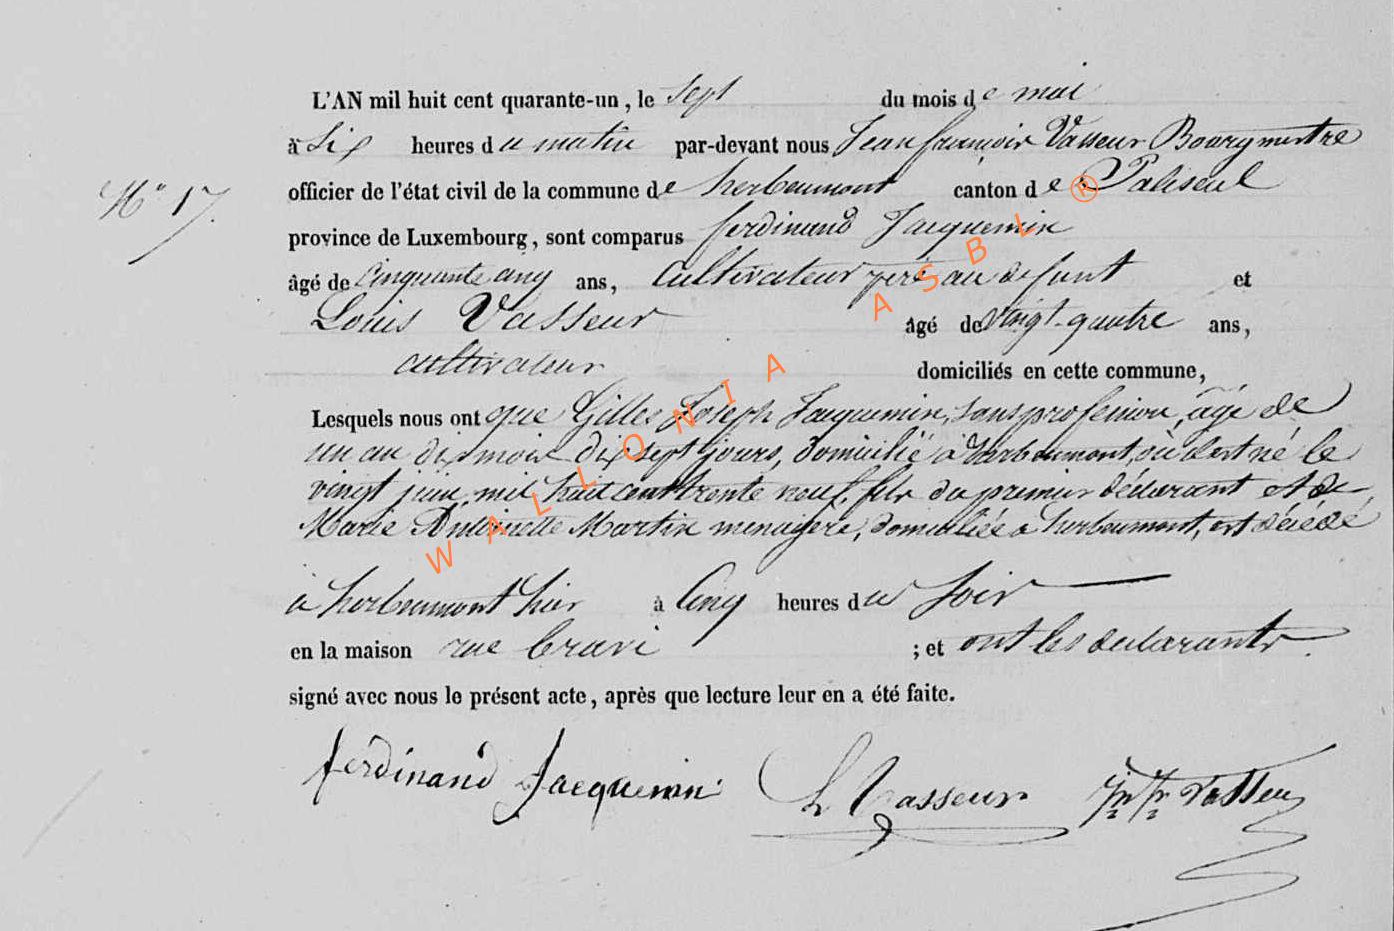 L'AN mil huit cent quarante-un, le sept du mois de mai
à Six heures du matin par-devant nous Jean francoir Vasseur Bourgmestre
officier de l'état civil de la commune de herbeumont canton de Paliseul
N° 17.
province de Luxembourg, sont comparus ferdinand Jacquemin
âgé de Cinquante cinq ans, Cultivateur père au defunt et
Louis Vasseur âgé de vingt-quatre ans,
cultivateur domiciliés en cette commune,
Lesquels nous ont que Gilles Joseph Jacquemin, sans profession, âgé de
un an dix mois dix sept jours, domicilié à herbeumont, où il est né le
vingt juin mil huit cent trente neuf, fils du premier déclarant et de
Marie Antoinette Martin menagère, domiciliée à herbeumont, est décédé
à herbeumont hier à Cinq heures du soir
en la maison rue ; et ont les declarants
signé avec nous le présent acte, après que lecture leur en a été faite.
ferdinand Jacquemin L Vasseur Jn fr Vasseur
WALLONIA ASBL ®